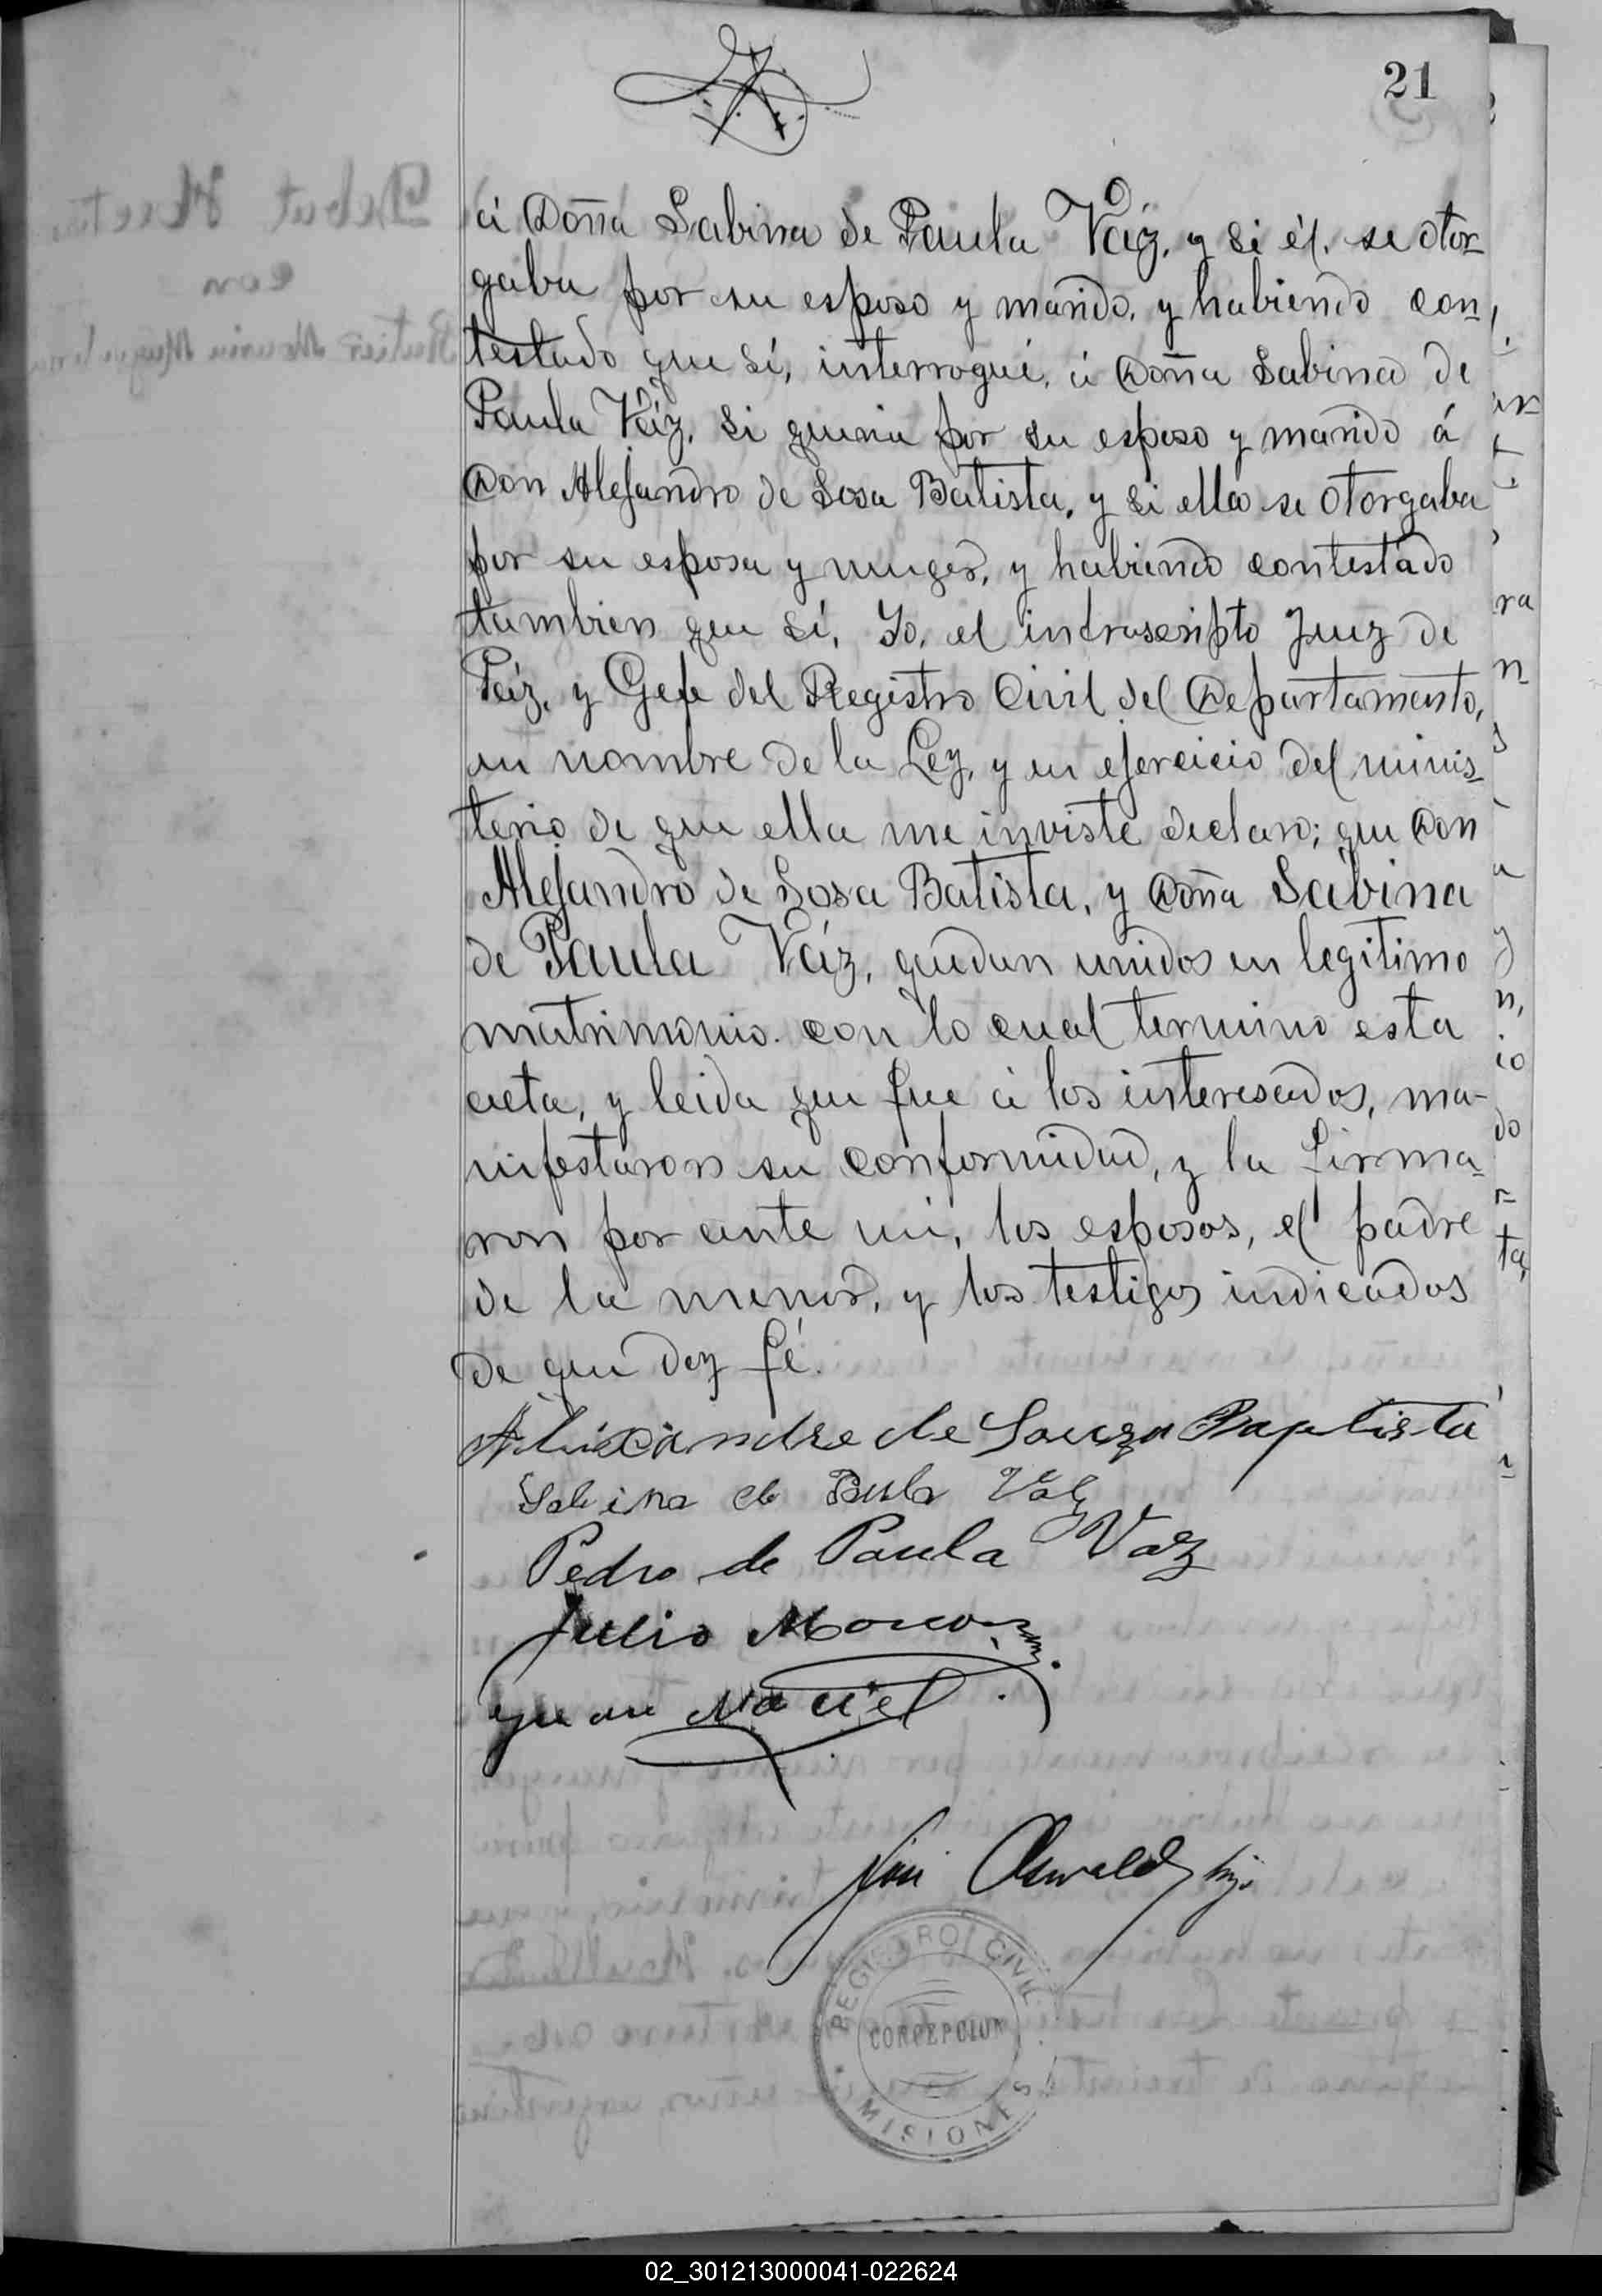 21
á Doña Sabina de Paula Váz, y si él, se otor-
gaba por su esposo y marido, y habiendo con-
testado que sí, interrogué, á Doña Sabina de
Paula Váz, si queria por su esposo y marido á
Don Alejandro de Sosa Batista, y si ella se otorgaba
por su esposa y muger, y habiendo contestado
tambien que sí, Yo, el infrascripto Juez de
Páz, y Gefe del Registro Civil del Departamento,
en nombre de la Ley, y en ejercicio del minis-
terio de que ella me inviste declaro; que Don
Alejandro de Sosa Batista, y Doña Sabina
de Paula Váz, quedan unidos en legitimo
matrimonio. con lo cual termino esta
acta, y leida que fue á los interesados, ma-
nifestaron su conformidad, y la firma-
ron por ante mi, los esposos, el padre
de la menor, y los testigos indicados
de que doy fé.
Alexandre de Souza Baptista
Sabina de Paula Vaz
Pedro de Paula Vaz
Julio
Juan Maciel
Oswald hijo
REGISTRO CIVIL
CONCEPCION
MISIONES
02_301213000041-022624